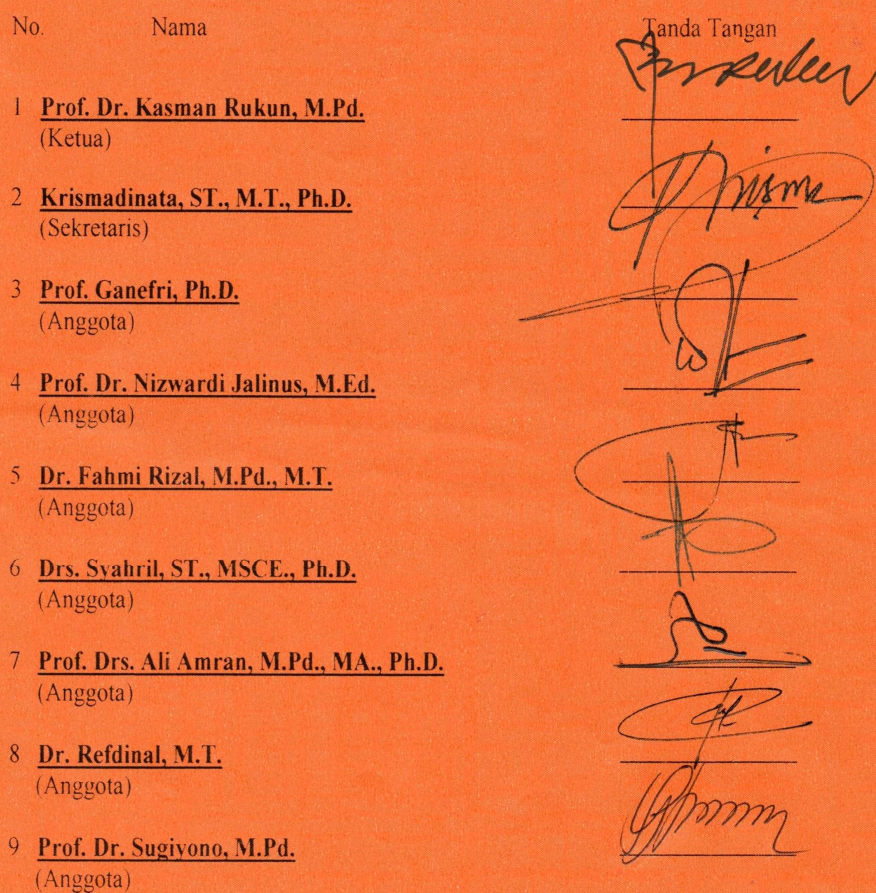 No. Nama Tanda Tangan
1 Prof. Dr. Kasman Rukun, M.Pd.
(Ketua)
2 Krismadinata, ST., M.T., Ph.D.
(Sekretaris)
3 Prof. Ganefri, Ph.D.
(Anggota)
4 Prof. Dr. Nizwardi Jalinus, M.Ed.
(Anggota)
5 Dr. Fahmi Rizal, M.Pd., M.T.
(Anggota)
6 Drs. Syahril, ST., MSCE., Ph.D.
(Anggota)
7 Prof. Drs. Ali Amran, M.Pd., MA., Ph.D.
(Anggota)
8 Dr. Refdinal, M.T.
(Anggota)
9 Prof. Dr. Sugiyono, M.Pd.
(Anggota)